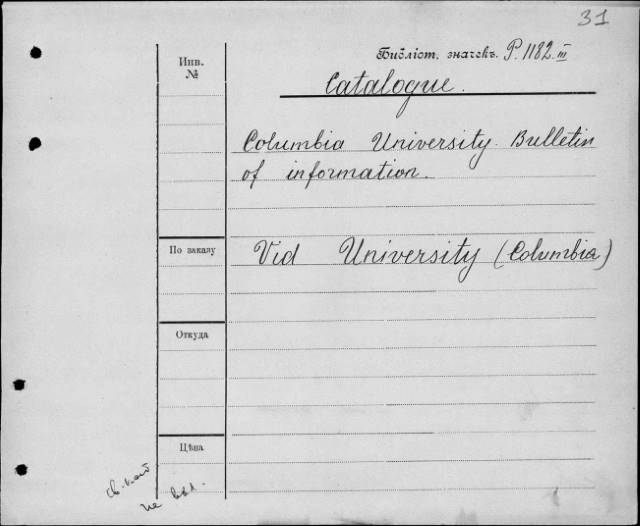 31
Библіот. значекъ. P. 1182. III
Инв.
№
Catalogue.
Columbia University. Bulletin
of information.
По заказу
Vid University (Columbia)
Откуда
Цѣна
не